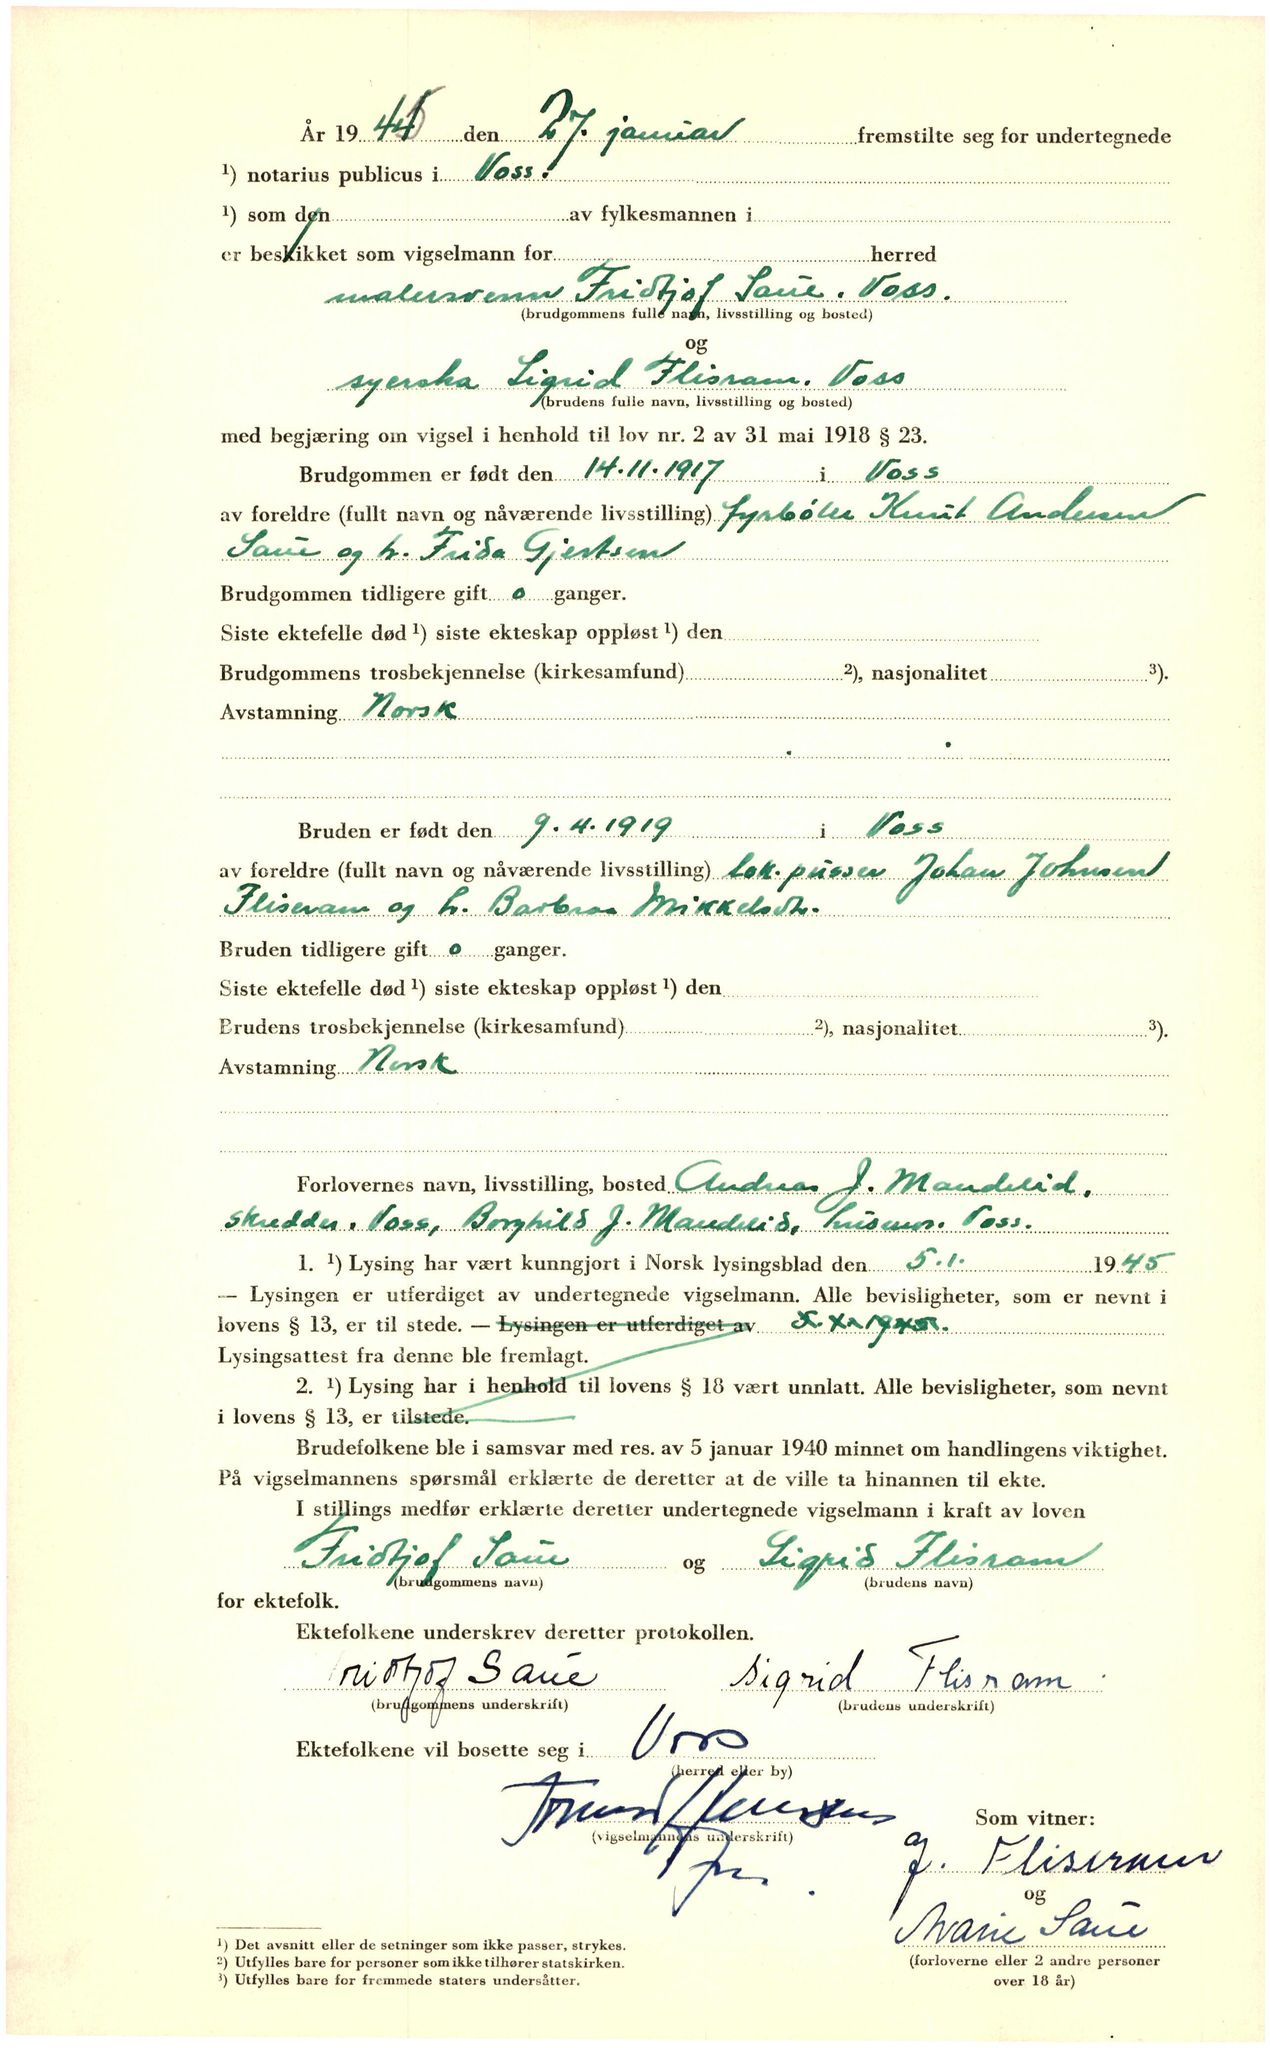 År 1945 den 27. januar fremstilte seg for undertegnede
¹) notarius publicus i Voss.
¹) som den av fylkesmannen i
er beskikket som vigselmann for herred
malersvenn Fridtjof Saue. Voss.
(brudgommens fulle navn, livsstilling og bosted)
og
syerska Sigrid Flisram. Voss
(brudens fulle navn, livsstilling og bosted)
med begjæring om vigsel i henhold til lov nr. 2 av 31 mai 1918 § 23.
Brudgommen er født den 14.11.1917 i Voss
av foreldre (fullt navn og nåværende livsstilling) fyrbøter Knut Andersen
Saue og h. Frida Gjertsen
Brudgommen tidligere gift 0 ganger.
Siste ektefelle død ¹) siste ekteskap oppløst ¹) den
Brudgommens trosbekjennelse (kirkesamfund) ²), nasjonalitet ³).
Avstamning Norsk
Bruden er født den 9.4.1919 i Voss
av foreldre (fullt navn og nåværende livsstilling) lok.pusser Johan Johnsen
Fliseram og h. Barbraa Mikkelsdtr.
Bruden tidligere gift 0 ganger.
Siste ektefelle død ¹) siste ekteskap oppløst ¹) den
Brudens trosbekjennelse (kirkesamfund) ²), nasjonalitet ³).
Avstamning Norsk
Forlovernes navn, livsstilling, bosted Andreas J. Mandelid,
skredder. Voss, Borghild J. Mandelid, husmor. Voss.
1. ¹) Lysing har vært kunngjort i Norsk lysingsblad den 5.1. 1945
— Lysingen er utferdiget av undertegnede vigselmann. Alle bevisligheter, som er nevnt i
lovens § 13, er til stede. — Lysingen er utferdiget av
Lysingsattest fra denne ble fremlagt.
2. ¹) Lysing har i henhold til lovens § 18 vært unnlatt. Alle bevisligheter, som nevnt
i lovens § 13, er tilstede.
Brudefolkene ble i samsvar med res. av 5 januar 1940 minnet om handlingens viktighet.
På vigselmannens spørsmål erklærte de deretter at de ville ta hinannen til ekte.
I stillings medfør erklærte deretter undertegnede vigselmann i kraft av loven
Fridtjof Saue og Sigrid Flisram
(brudgommens navn) (brudens navn)
for ektefolk.
Ektefolkene underskrev deretter protokollen.
Fridtjof Saue Sigrid Flisram
(brudgommens underskrift) (brudens underskrift)
Ektefolkene vil bosette seg i Voss
(herred eller by)
Som vitner:
(vigselmannens underskrift)
J. Fliseram
og
Marie Saue
(forloverne eller 2 andre personer
over 18 år)
¹) Det avsnitt eller de setninger som ikke passer, strykes.
²) Utfylles bare for personer som ikke tilhører statskirken.
³) Utfylles bare for fremmede staters undersåtter.